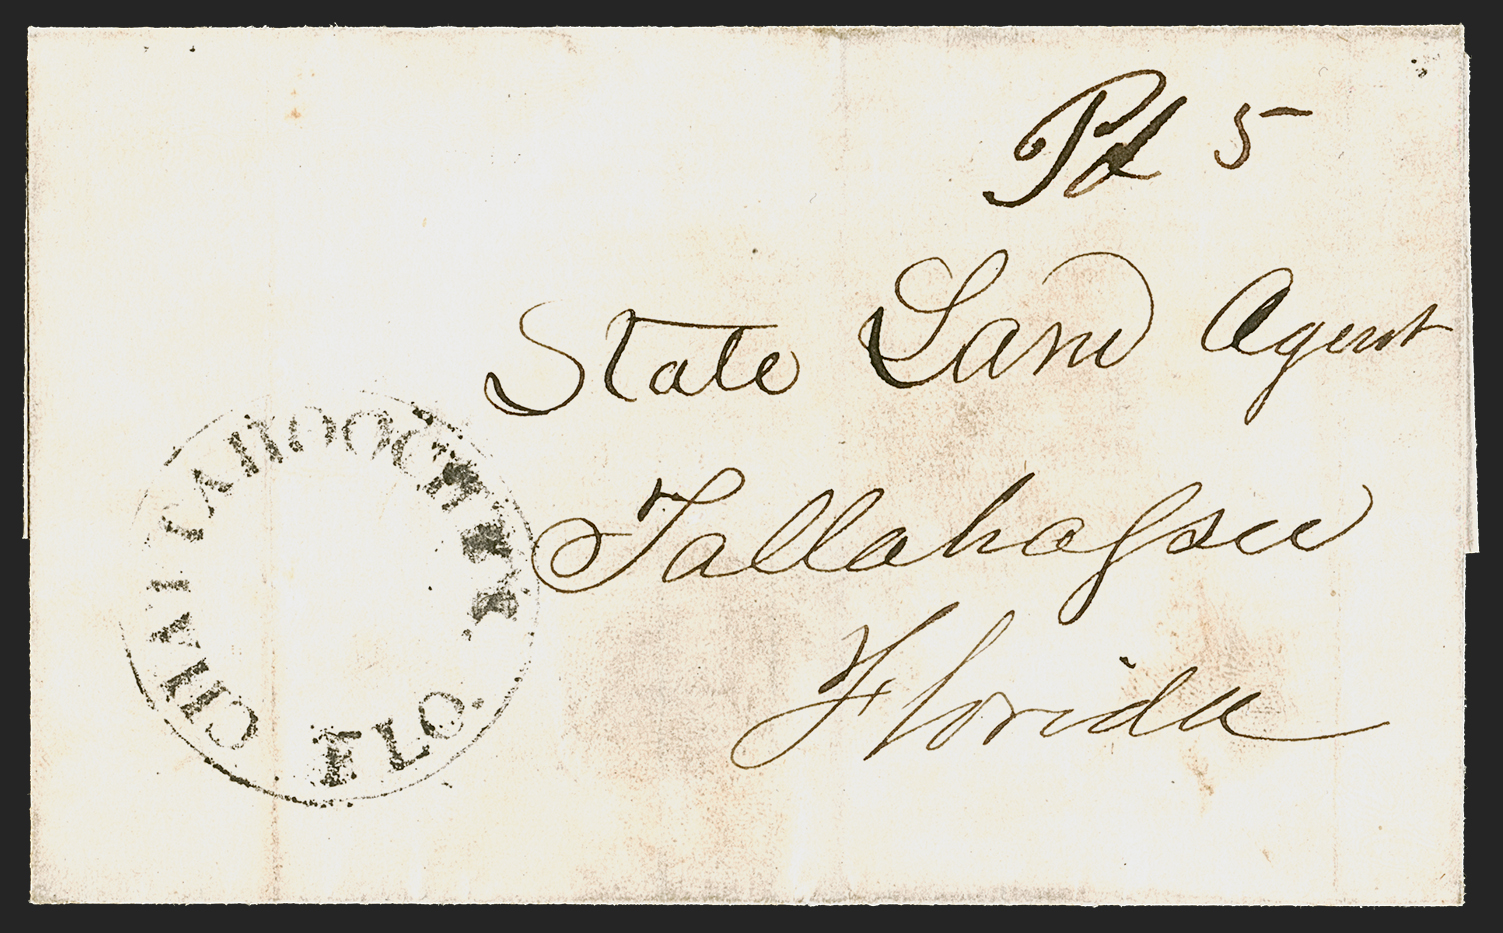 Pd 5
State Land Agent
Tallahassee
Florida
CHATTAHOOCHEE
FLO.